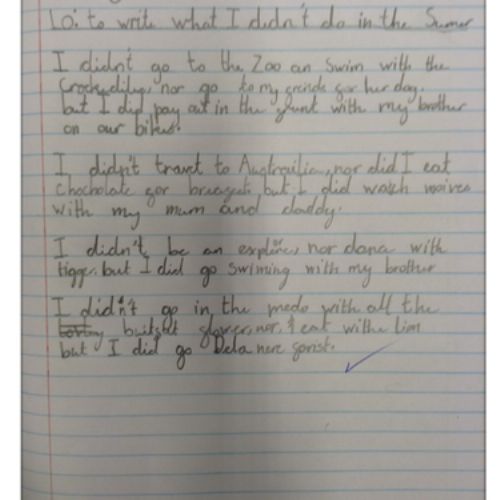 LO: to write what I didn't do in the Sumer
I didn't go to the Zoo an Swim with the
Crockydiles, nor go to my greinds gor her day.
but I did pay out in the grunt with my brother
on our bikes.
I didn't travet to Austrailia, nor did I eat
chocholate gor breagest but I did watch moives
with my mum and daddy.
I didn't be an explorer, nor dance with
tigge, but I did go swiming with my brother
I didn't go in the medo with all the
glower, nor, I eat withe Lion
but I did go Dela nere gorist.